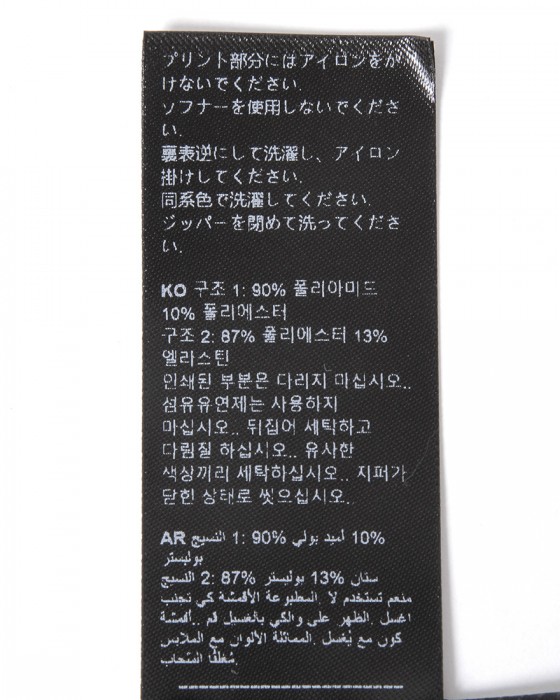 プリント部分にはアイロンをか
けないでください.
ソフナーを使用しないでくださ
い.
裏表逆にして洗濯し、アイロン
掛けしてください.
同系色で洗濯してください.
ジッパーを閉めて洗ってくださ
い.
KO 구조 1: 90% 폴리아미드
10% 폴리에스터
구조 2: 87% 폴리에스터 13%
엘라스틴
인쇄된 부분은 다리지 마십시오..
섬유유연제는 사용하지
마십시오.. 뒤집어 세탁하고
다림질 하십시오.. 유사한
색상끼리 세탁하십시오.. 지퍼가
닫힌 상태로 씻으십시오..
AR النسيج 1: 90% أميد بولي 10%
بوليستر
النسيج 2: 87% بوليستر 13% ستان
منعم تستخدم لا .المطبوعة الأقمشة كي تجنب
اغسل .الظهر على والكي بالغسيل قم ..أقمشة
كون مع يُغسل .المماثلة الألوان مع الملابس
.مُغلقًا السَّحاب